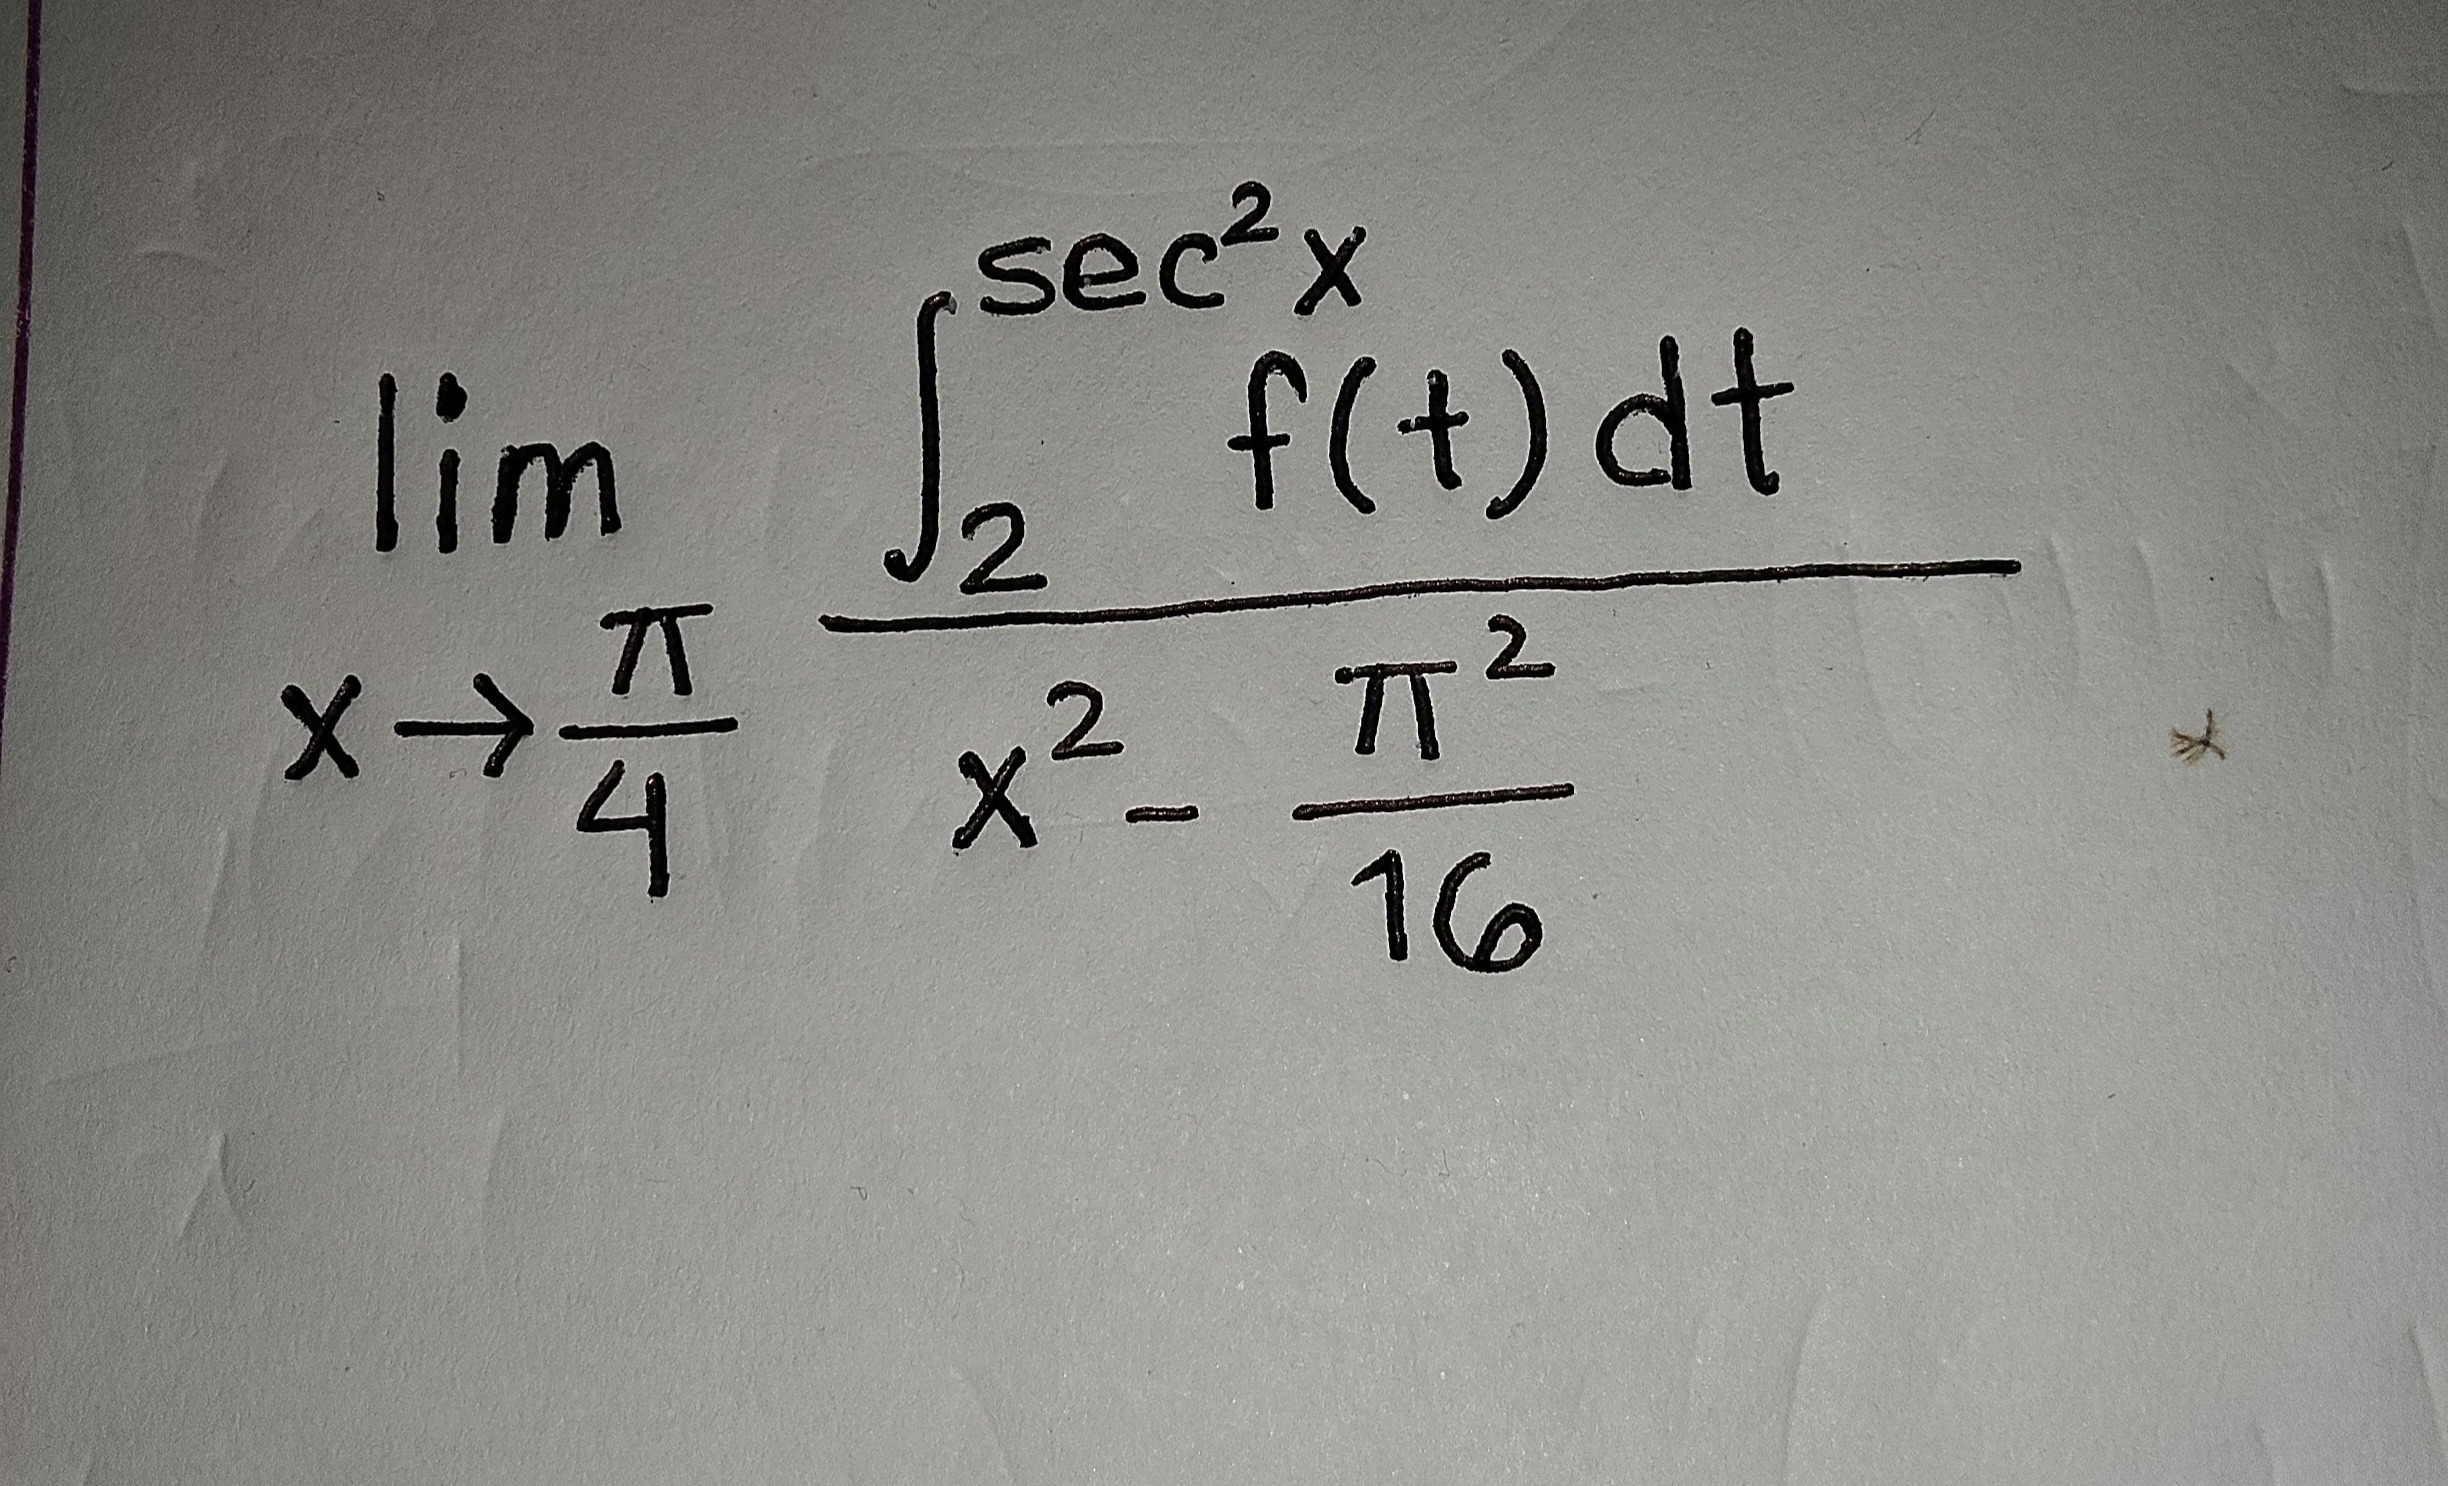 lim_{x→\frac{π}{4}} \frac{\int_{2}^{sec^2 x} f(t) dt}{x^2 - \frac{π^2}{16}}